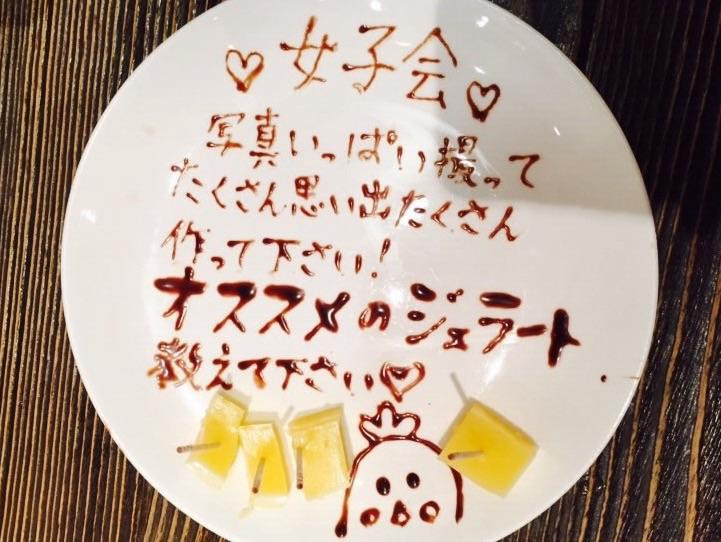 ♡女子会♡
写真いっぱい撮って
たくさん思い出たくさん
作って下さい!
オススメのジェラート
教えて下さい♡